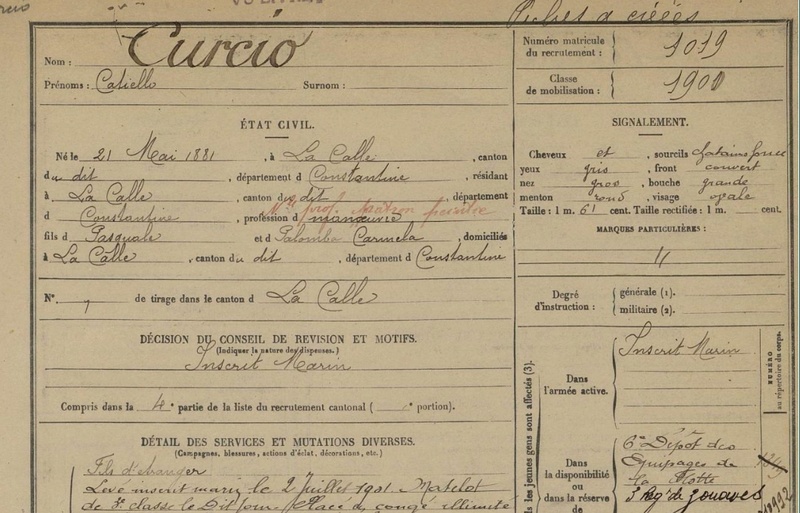 Fiches d créées
Nom : Curcio
Prénoms : Catiello Surnom :
Numéro matricule du recrutement : 1019
Classe de mobilisation : 1901
ÉTAT CIVIL.
Né le 21 Mai 1881, à La Calle, canton
du dit, département d Constantine, résidant
à La Calle, canton du dit, département
d Constantine, profession d manœuvre
fils d Pasquale et d Palomba Carmela, domiciliés
à La Calle, canton du dit, département d Constantine
N°. 7 de tirage dans le canton d La Calle
SIGNALEMENT.
Cheveux et, sourcils châtains foncé
yeux gris, front couvert
nez gros, bouche grande
menton rond, visage ovale
Taille : 1 m. 61 cent. Taille rectifiée : 1 m. cent.
MARQUES PARTICULIÈRES :
"
Degré d'instruction : générale (1).
militaire (2).
DÉCISION DU CONSEIL DE REVISION ET MOTIFS.
(Indiquer la nature des dispenses.)
Inscrit Marin
Compris dans la 4e partie de la liste du recrutement cantonal ( portion).
DÉTAIL DES SERVICES ET MUTATIONS DIVERSES.
(Campagnes, blessures, actions d'éclat, décorations, etc.)
Fils d'étranger
Levé inscrit marin le 2 juillet 1901. Matelot
de 3e classe le Dit jour. Placé en congé illimité
les jeunes gens sont affectés (3).
Dans l'armée active.
Inscrit Marin
NUMÉRO au répertoire du corps.
Dans la disponibilité ou dans la réserve de
6e Dépôt des
Equipages de
la Flotte
3 Rgt de zouaves